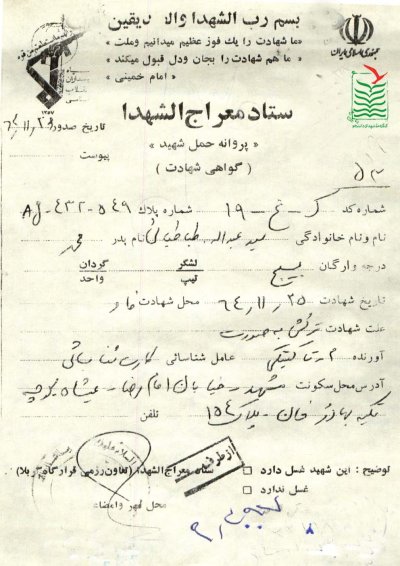 بسم رب الشهدا والصدیقین
«ما شهادت را یك فوز عظیم میدانیم وملت»
«ما هم شهادت را بجان ودل قبول میكند»
«امام خمینی»
جمهوری اسلامی ایران
سپاه
پاسداران
انقلاب
اسلامی
۱۳۵۷
ستاد معراج الشهدا
«پروانه حمل شهید»
(گواهی شهادت)
تاریخ صدور ۶۴،۱۱،۲۹
پیوست
شماره کد ک-خ-۱۹ شماره پلاك AJ-۴۳۲-۵۴۹
نام ونام خانوادگی سید عبداله طباطبائی نام پدر محمد
درجه وارگان بسیج لشکر گردان
تیپ واحد
تاریخ شهادت ۶۴،۱۱،۲۵ محل شهادت فاو
علت شهادت ترکش به صورت
آورنده عامل شناسائی کارت شناسائی
آدرس محل سکونت مشهد-خیابان امام رضا-
پلاک ۱۵۴ تلفن
توضیح: این شهید غسل دارد □ ستاد معراج الشهدا (تعاون رزمی قرارگاه کربلا)
غسل ندارد □ محل مهر وامضاء
از طرف